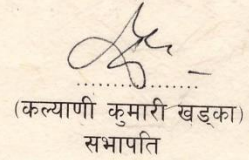 ................
(कल्याणी कुमारी खड्का)
सभापति